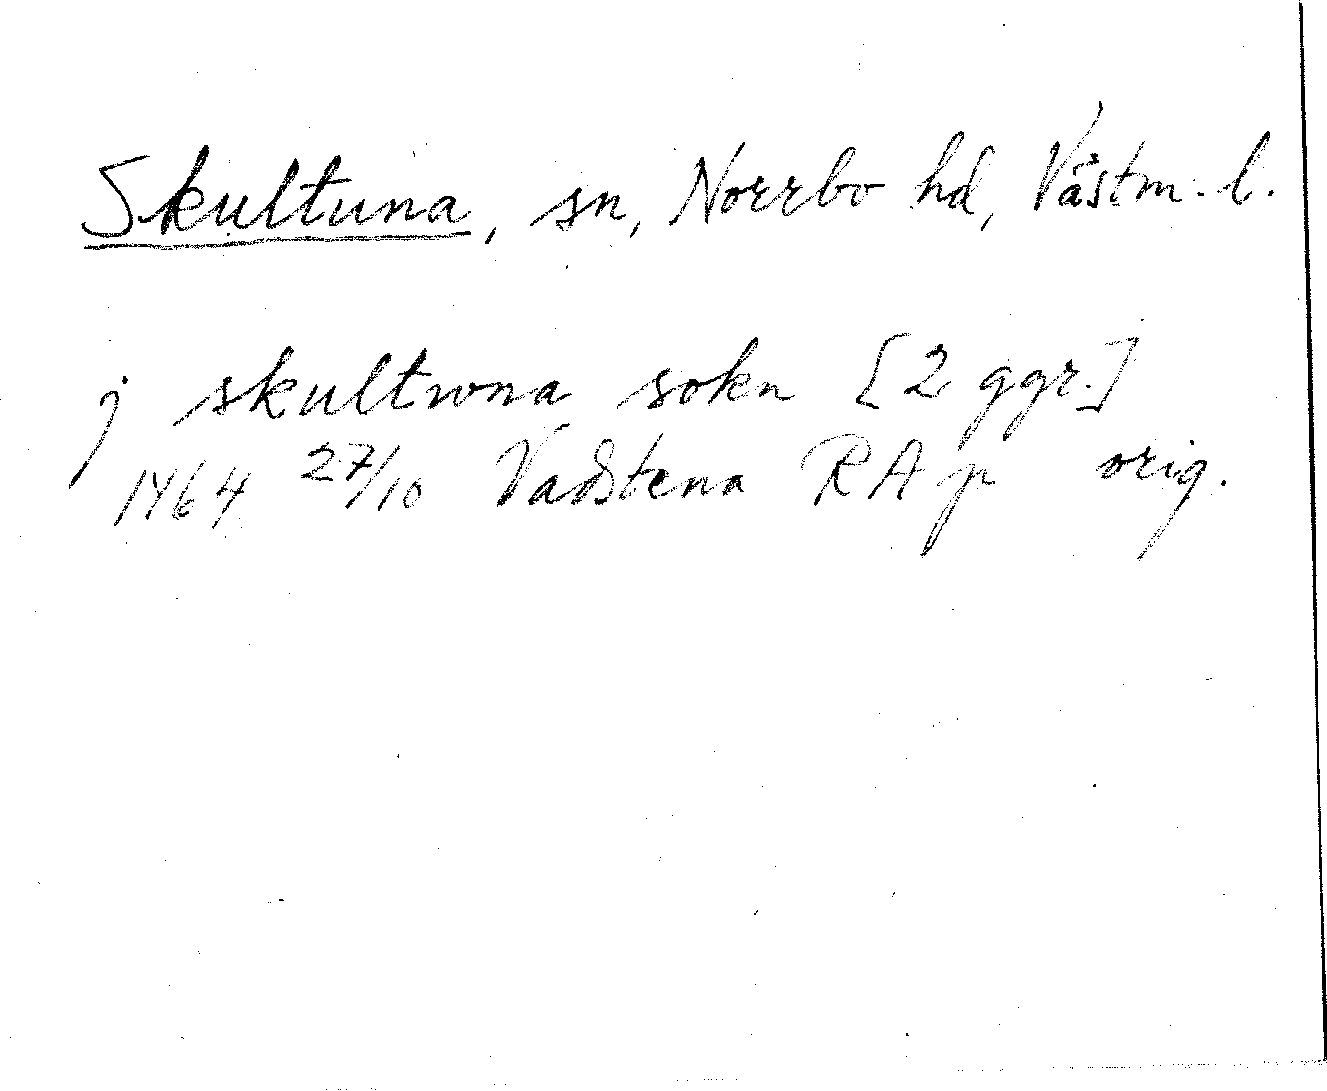 Skultuna, sn, Norrbo hd, Västm. l.
j skultwna sokn [2 ggr.]
1464 27/10 Vadstena RAp orig.